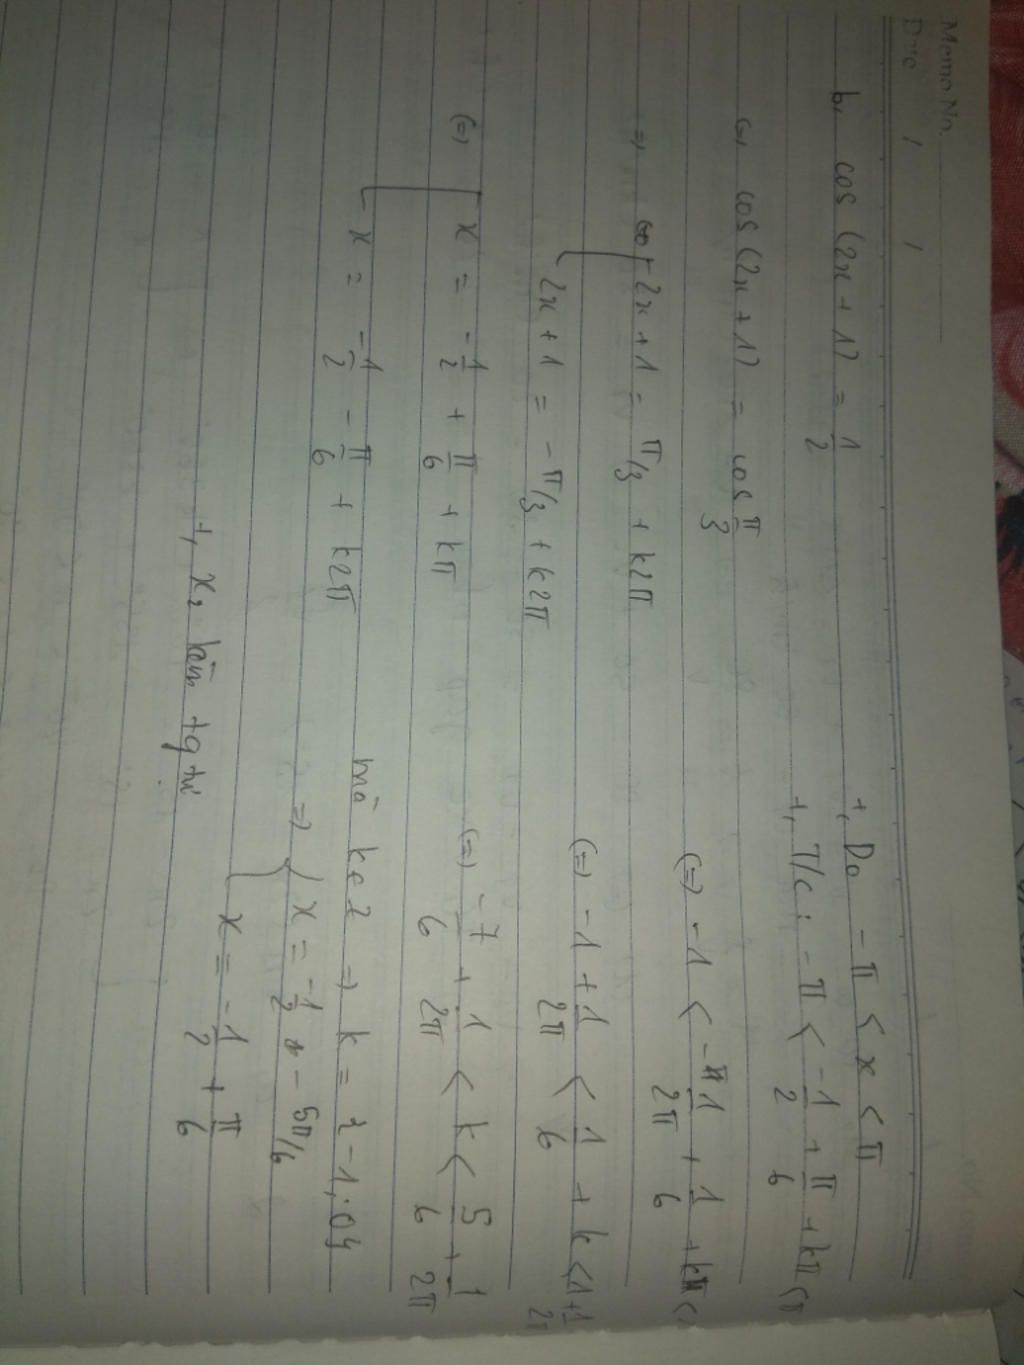 Memo No.
Date / /
b, cos (2x + 1) = 1/2
(=) cos (2x + 1) = cos π/3
=) [ 2x + 1 = π/3 + k2π
2x + 1 = - π/3 + k2π
(=) [ x = -1/2 + π/6 + kπ
x = -1/2 - π/6 + k2π
+, Do -π < x < π
+, T/c : -π < -1/2 + π/6 + kπ <
(=) -1 < -1/2π + 1/6 + k <
(=) -1 + 1/2π < 1/6 + k < 1 + 1/2π
(=) -7/6 + 1/2π < k < 5/6 + 1/2π
mà k∈Z => k = {-1; 0}
=> { x = -1/2 - 5π/6
x = -1/2 + π/6
+, x2 làm tg tự